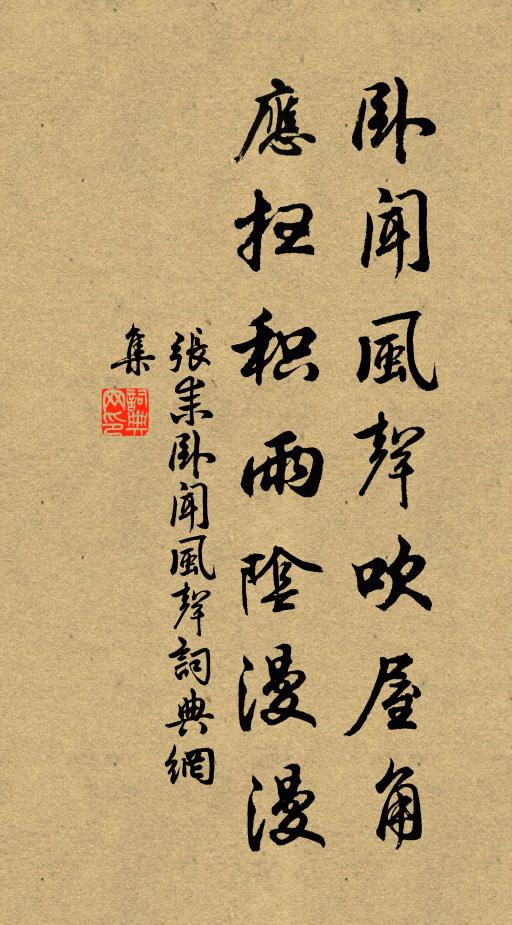 卧闻風聲吹屋角
應扫积雨陰漫漫
張耒卧闻風聲詞典網
集
詞典网印